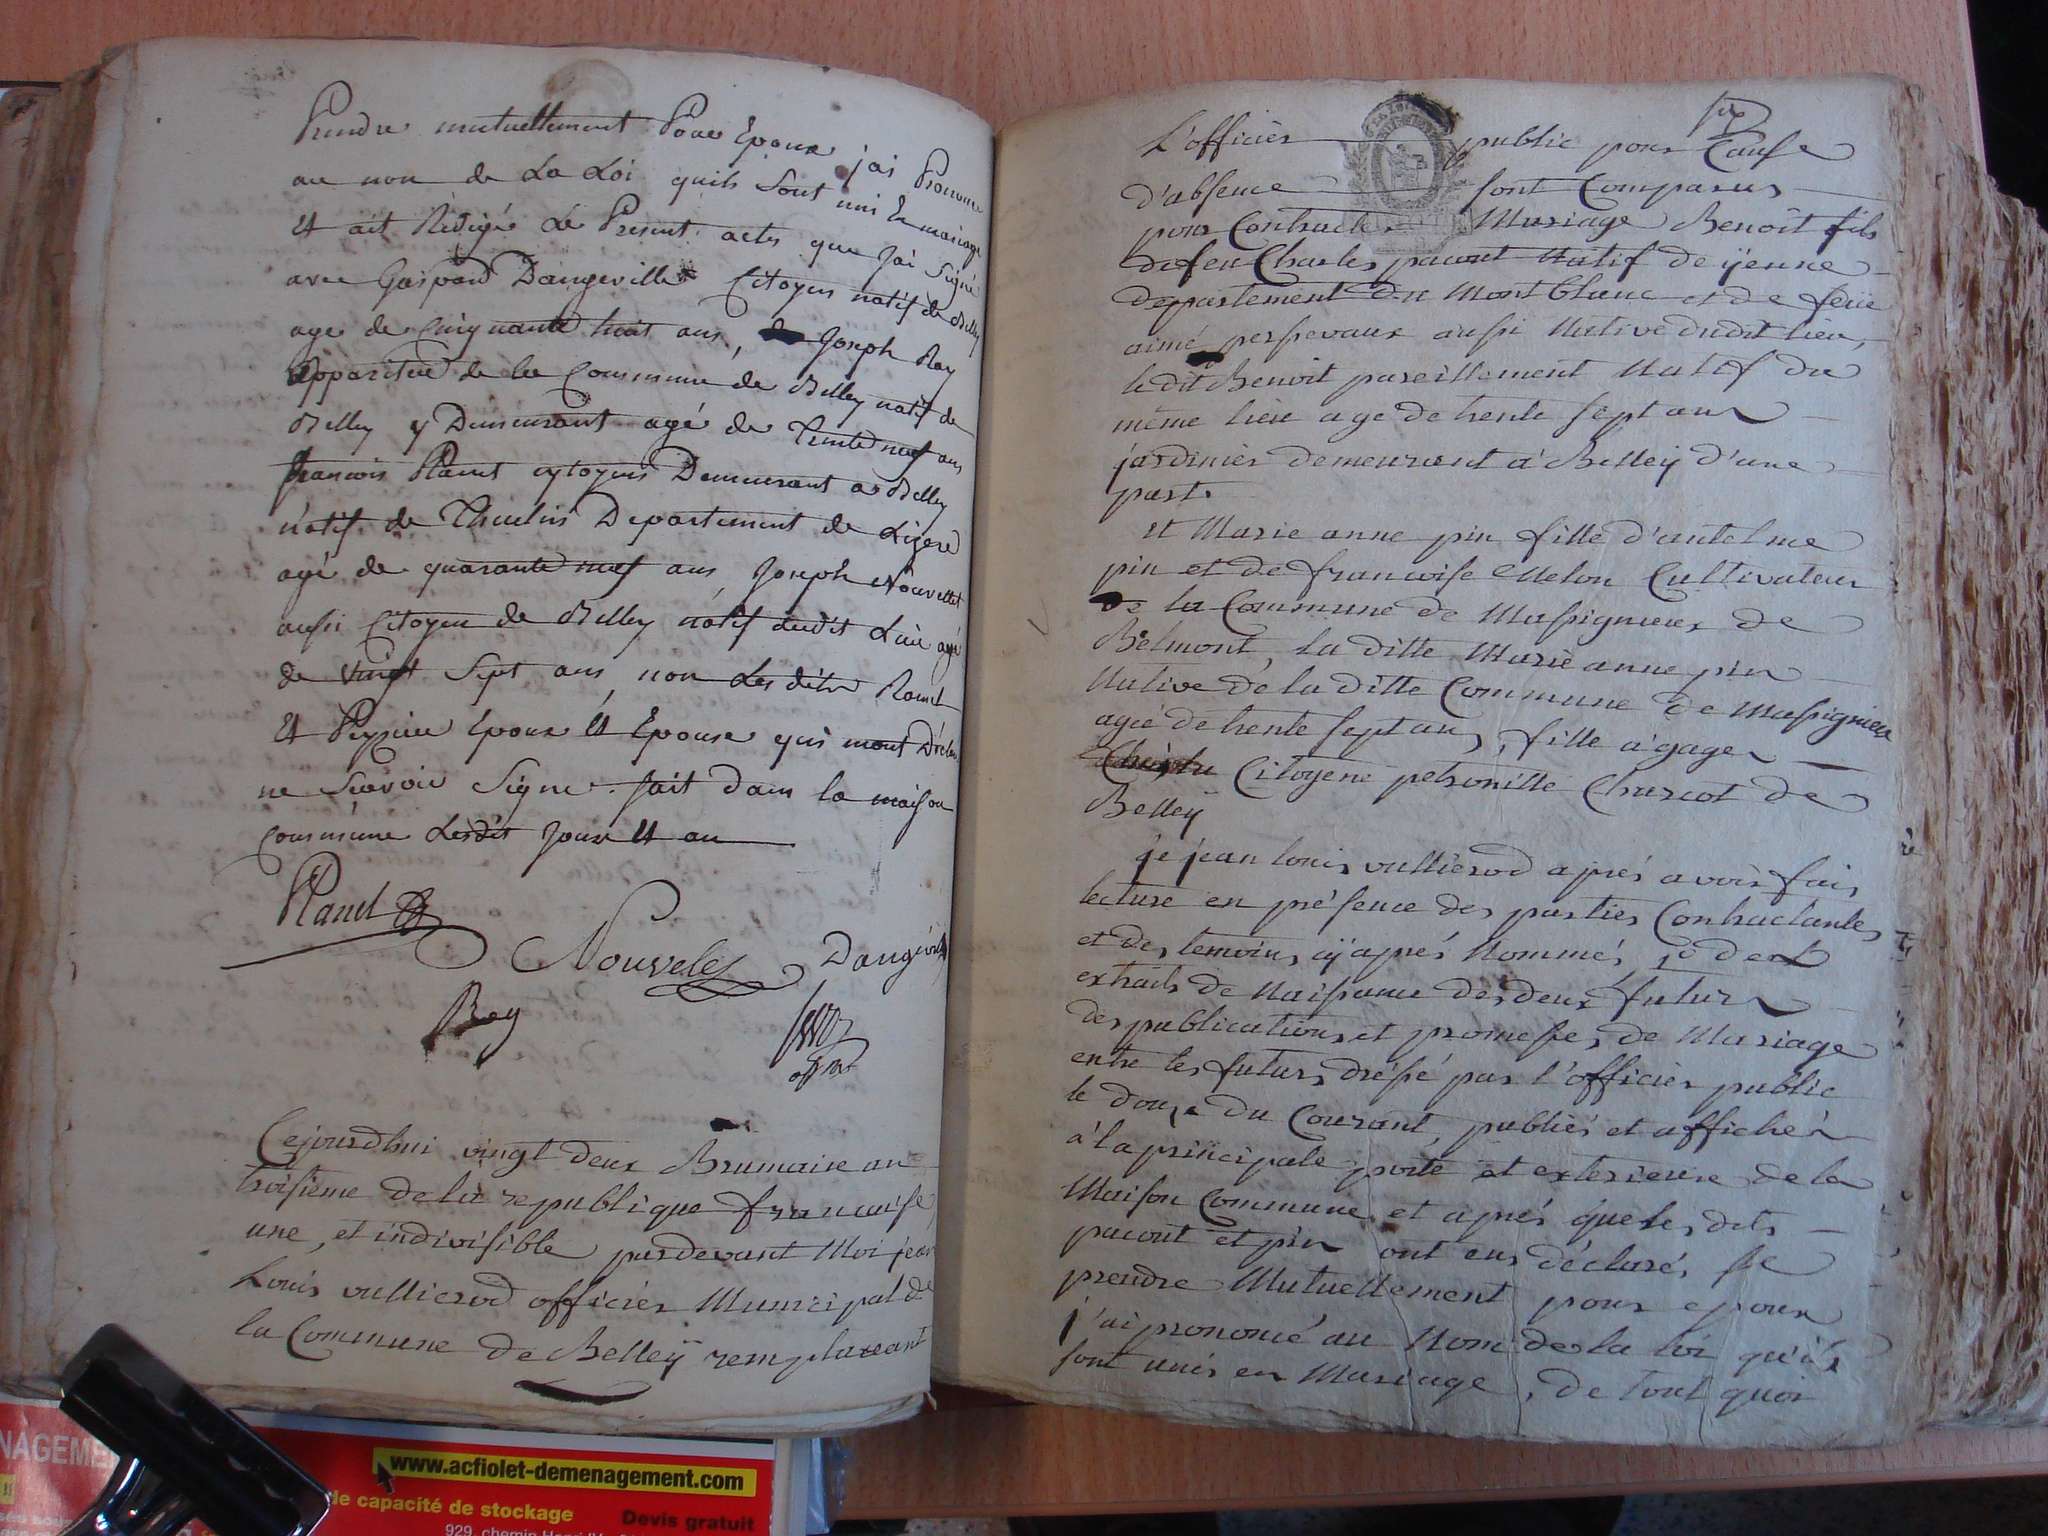 Prendre mutuellement Pour Epoux jai Prononcé
au non de La Loi quils sont unis En mariage
Et ait Rédigé Le Present actes que jai signé
avec Gaspard Dangeville Citoyen natif de Belley
age de Cinquante huit ans, Joseph Rey
appariteur de la Commune de Belley natif de
Belley y Demeurant agé de Trente neuf ans
francois Planet cytoyens Demeurant a Belley
natif de Departement de Lizere
agé de quarante neuf ans Joseph Nouvellet
aussi Citoyen de Belley natif dudit Lieu agé
de vingt sept ans, non Les dits
Et Epoux Et Epouse qui mont Déclaré
ne scavoir signe. fait dans la maison
commune Lesdit Jour Et an
Planet
Nouvelet Dangeville
Rey
Cejourdhui vingt deux Brumaire an
troisieme de la republique francaise,
une, et indivisible pardevant Moi jean
Louis vullierod officier Municipal de
la Commune de Belleÿ remplaceant
L'officier public pour Cause
d'absence sont Comparus
pour Contracter Mariage Benoit fils
de feu Charles pacout Natif de ÿenne
departement du Montblanc et de feüe
aimé perpevaux aussi Native dudit lieu,
le dit Benoit pareillement Natif du
même lieu age de trente sept ans
jardinier demeurant a Belleÿ d'une
part.
et Marie anne pin fille d'antelme
pin et de francoise Melon Cultivateur
de la Commune de Massignieux de
Belmont, la ditte Marie anne pin
Native de la ditte Commune de Massignieux
agée de trente sept ans, fille a gages
Citoyene petronille Charcot de
Belleÿ
je jean louis vullierod aprés avoir fais
lecture en présence des parties Contractantes
et des temoins cÿ aprés Nommés,
extraits de Naissance des deux futurs
des publications et promesses de Mariage
entre les futurs dréssé par l'officier public
le douze du Courant, publiés et affichés
à la principale porte et exterieure de la
Maison Commune et aprés que les dits
pacout et pin ont eus déclarés se
prendre Mutuellement pour epoux
j'ai prononcé au Nom de la loi qu'ils
sont unis en Mariage, de tout quoi
NAGEME
www.acfiolet-demenagement.com
de capacité de stockage Devis gratuit
929, chemin